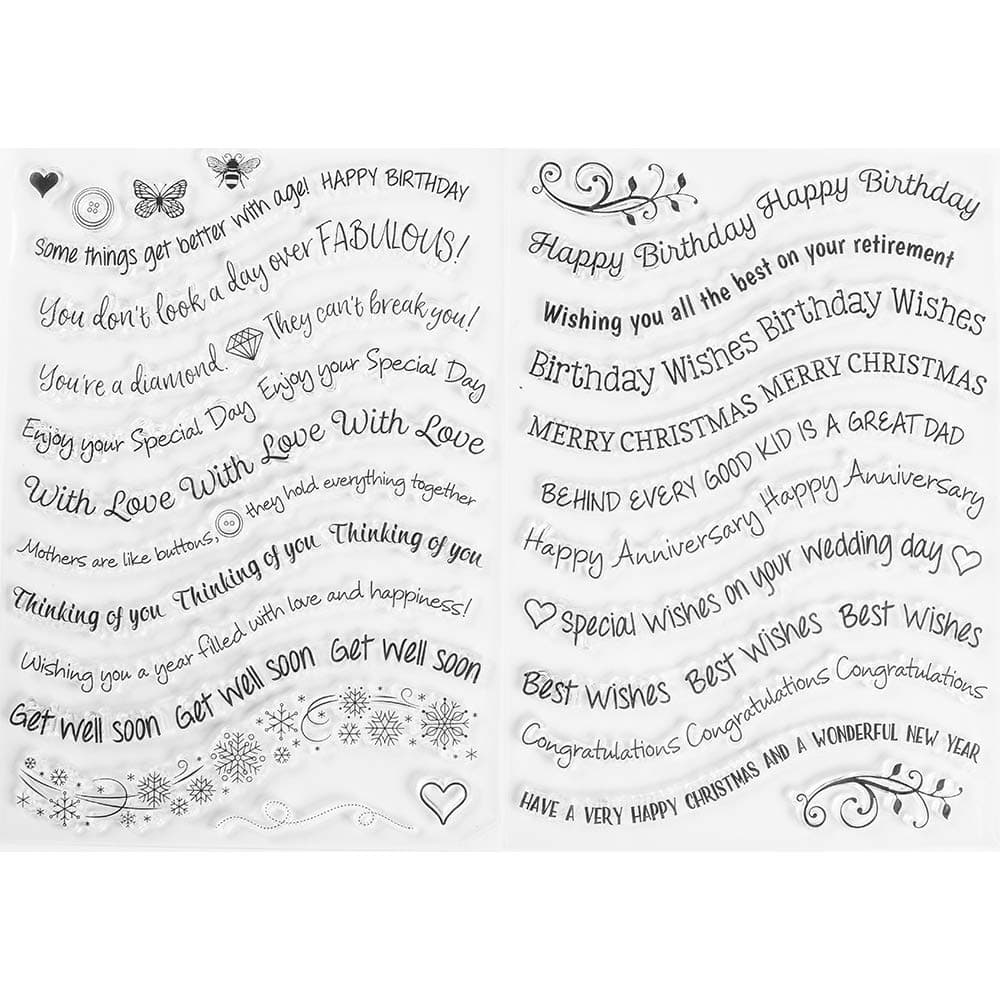 Some things get better with age! HAPPY BIRTHDAY
You don't look a day over FABULOUS!
You're a diamond. They can't break you!
Enjoy your Special Day Enjoy your Special Day
With Love With Love With Love
Mothers are like buttons, they hold everything together
Thinking of you Thinking of you Thinking of you
Wishing you a year filled with love and happiness!
Get well soon Get well soon Get well soon
Happy Birthday Happy Birthday
Wishing you all the best on your retirement
Birthday Wishes Birthday Wishes
MERRY CHRISTMAS MERRY CHRISTMAS
BEHIND EVERY GOOD KID IS A GREAT DAD
Happy Anniversary Happy Anniversary
Special wishes on your wedding day
Best Wishes Best Wishes Best Wishes
Congratulations Congratulations Congratulations
HAVE A VERY HAPPY CHRISTMAS AND A WONDERFUL NEW YEAR